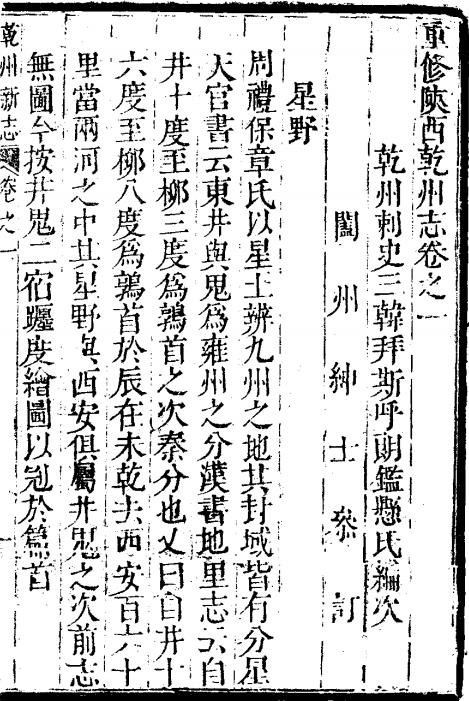 重修陝西乾州志卷之一
乾州刺史三韓拜斯呼朗鑑懸氏編次
闔州紳士叅訂
星野
周禮保章氏以星土辨九州之地其封域皆有分星
天官書云東井輿鬼為雍州之分漢書地里志云自
井十度至柳三度為鶉首之次秦分也又曰自井十
六度至柳八度為鶉首於辰在未乾去西安百六十
里當兩河之中其星野與西安俱屬井鬼之次前志
無圖今按井鬼二宿躔度繪圖以冠於篇首
乾州新志 卷之一